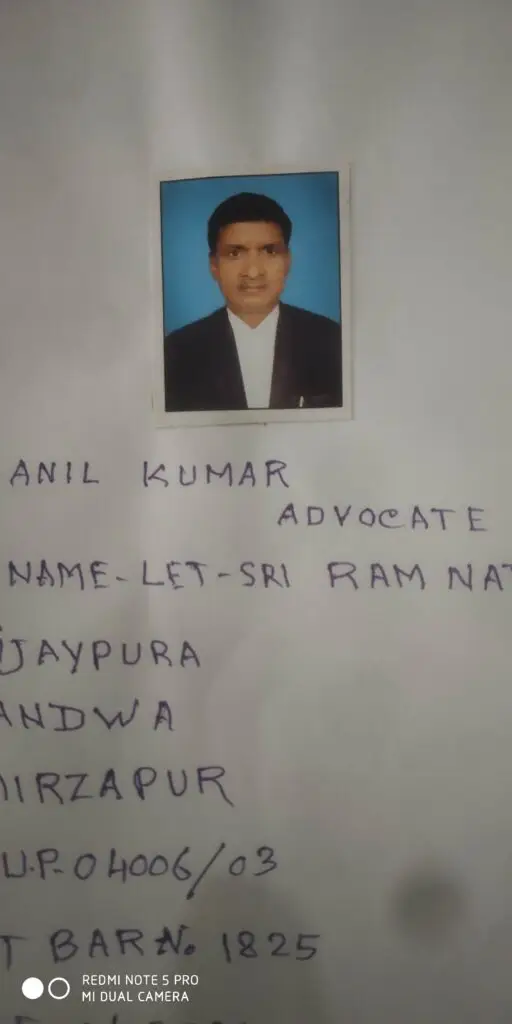 ANIL KUMAR
ADVOCATE
NAME-LET-SRI RAM NAT
IJAYPURA
ANDWA
MIRZAPUR
U.P.04006/03
T BAR No. 1825
REDMI NOTE 5 PRO
MI DUAL CAMERA